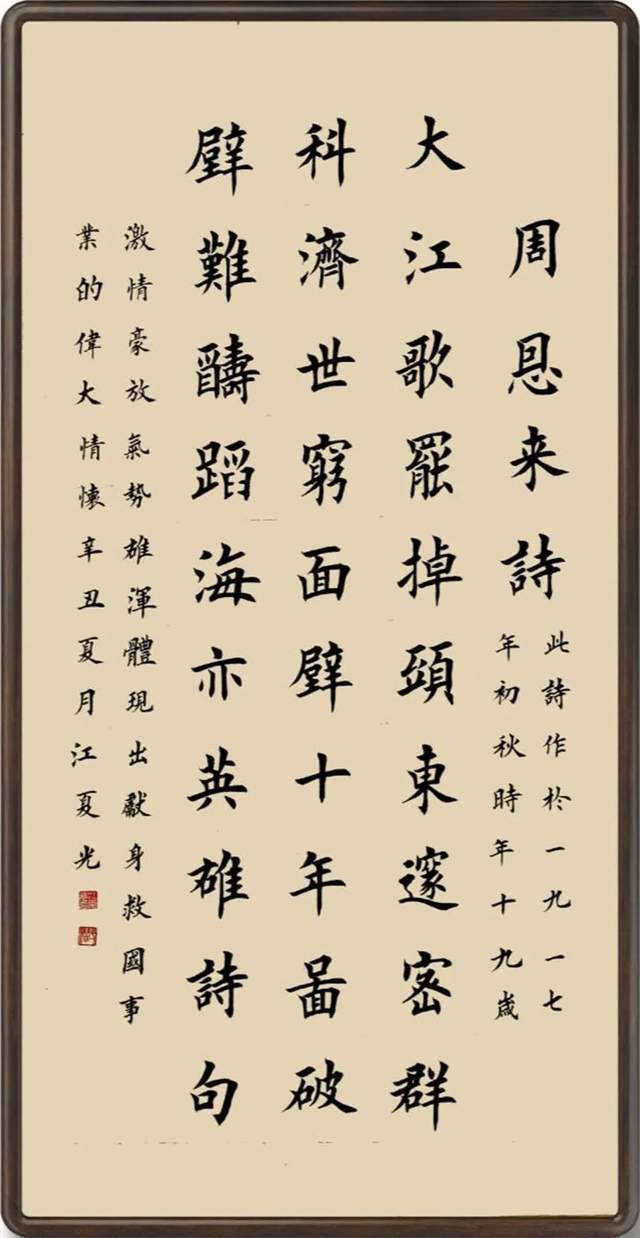 周恩来詩
此詩作於一九一七
年初秋時年十九歲
大江歌罷掉頭東邃密群
科濟世窮面壁十年啚破
壁難醻蹈海亦英雄詩句
激情豪放氣勢雄渾體現出獻身救國事
業的偉大情懷辛丑夏月江夏光